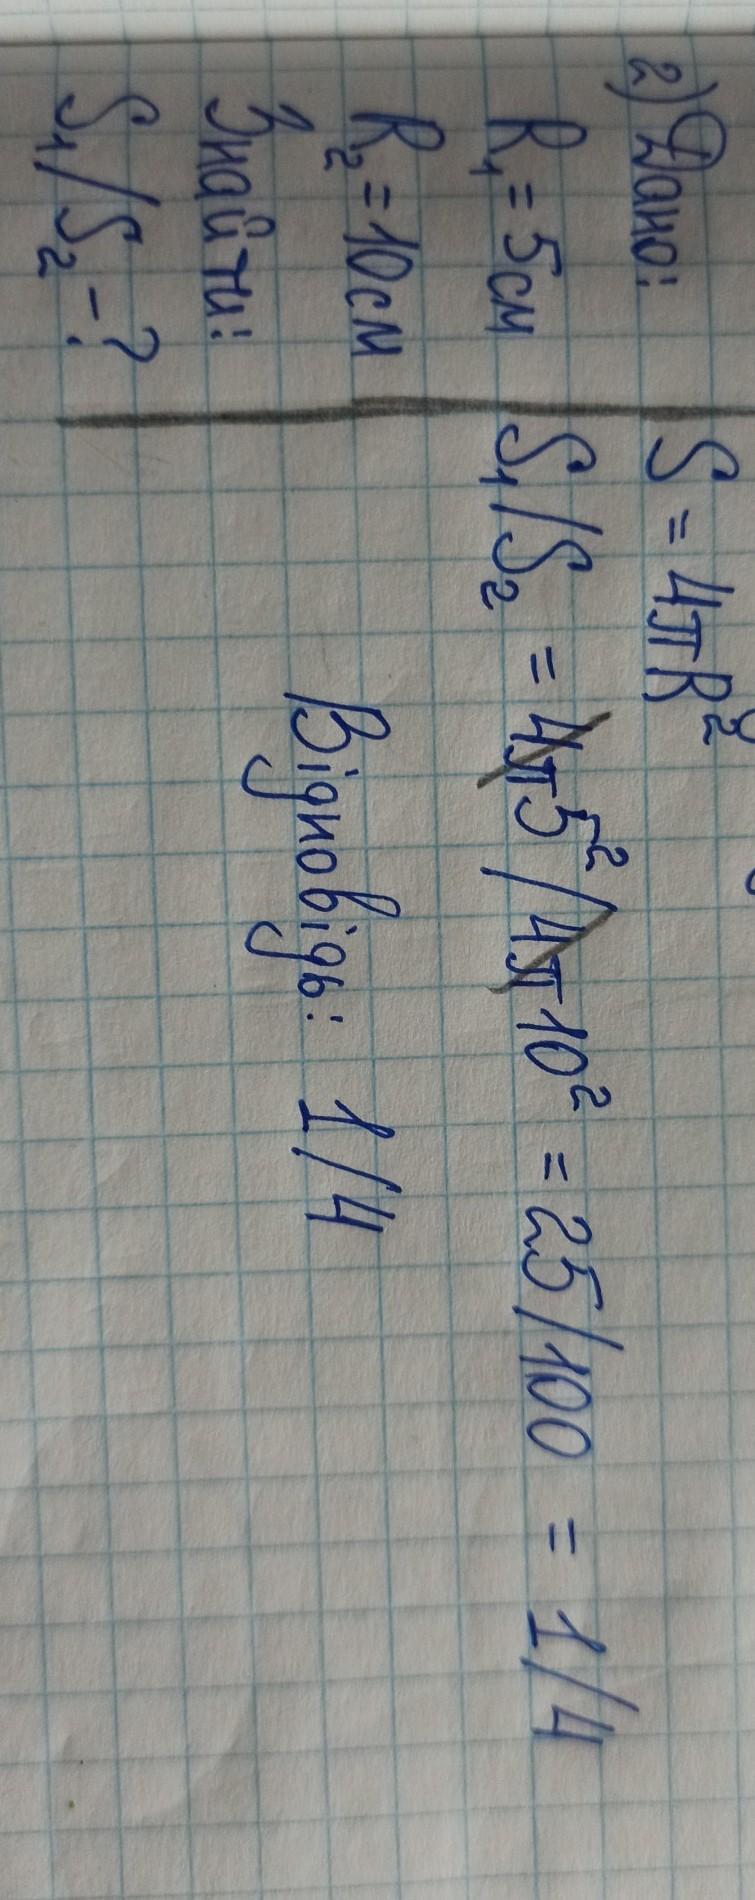 2) Дано:
R₁ = 5см
R₂ = 10см
Знайти:
S₁/S₂ - ?
S = 4πR²
S₁/S₂ = 4π5²/4π10² = 25/100 = 1/4
Відповідь: 1/4